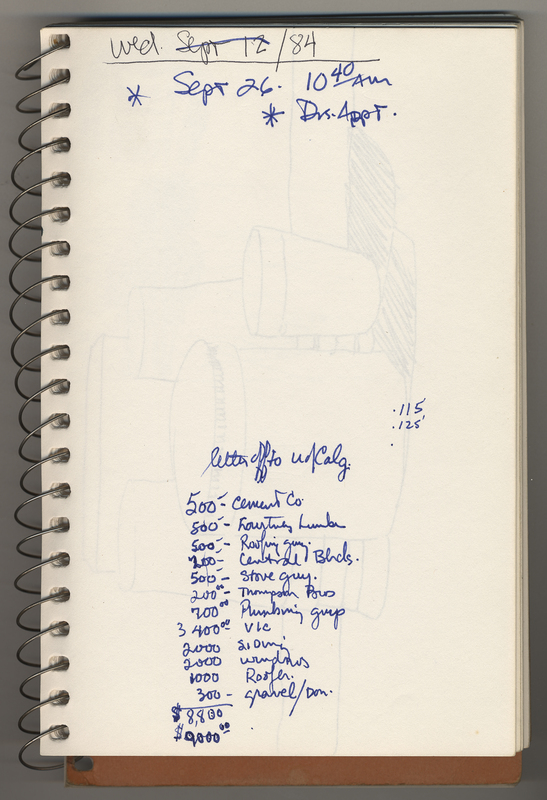 Wed. Sept 12/84
* Sept 26. 10 40 Am
* Drs. Appt.
.115
.125
letter off to U of Calg.
500- Cement Co.
500-
500- Roofing guy.
200- Central Blds.
500- Stove guy.
200 00- Thompson Bros
700 00 Plumbing guys
3 400 00 Vic
2000 siding
2000 windows
1000 Roofer.
300 - gravel/Don.
$ 8,800
$ 9,000 00